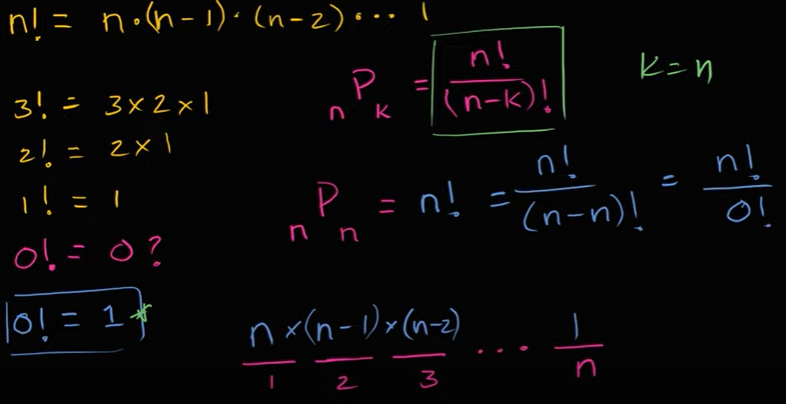 n! = n·(n-1)·(n-2)··· 1
3! = 3×2×1
2! = 2×1
1! = 1
0! = 0?
0! = 1*
nPk = n!/(n-k)!
k=n
nPn = n! = n!/(n-n)! = n!/0!
n×(n-1)×(n-2) ··· 1
1 2 3 n